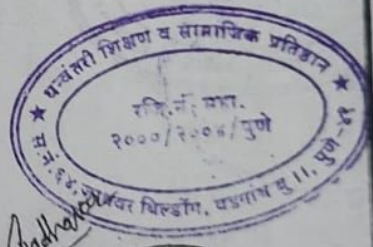 ★ धन्वंतरी शिक्षण व सामाजिक प्रतिष्ठान ★
रजि. नं. महा.
२०००/२००४/पुणे
स.नं. ६४, बिल्डींग, वडगांव बु॥, पुणे-४१